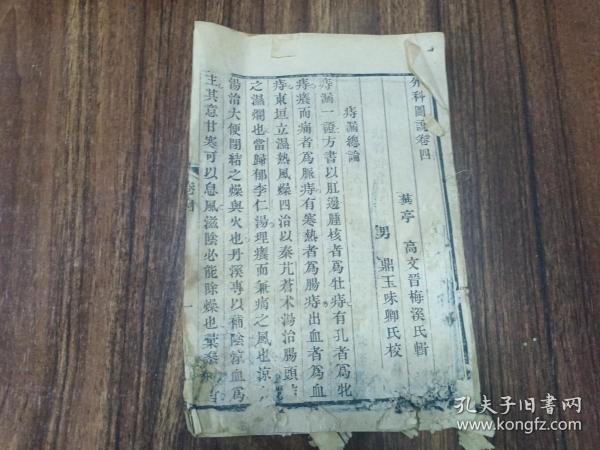 外科圖說卷四
燕亭 高文晉梅溪氏輯
男 鼎玉味卿氏校
痔漏總論
痔漏一證方書以肛邊腫核者爲牡痔有孔者爲牝
痔癢而痛者爲脈痔有寒熱者爲腸痔出血者爲血
痔東垣立濕熱風燥四治以秦艽蒼朮湯治腸頭
之濕爛也當歸郁李仁湯理癢而兼痛之風也涼
湯治大便閉結之燥與火也丹溪專以補陰涼血爲
主其意甘寒可以息風滋陰必能除燥也
卷四
一
孔夫子旧书网
www.kongfz.com